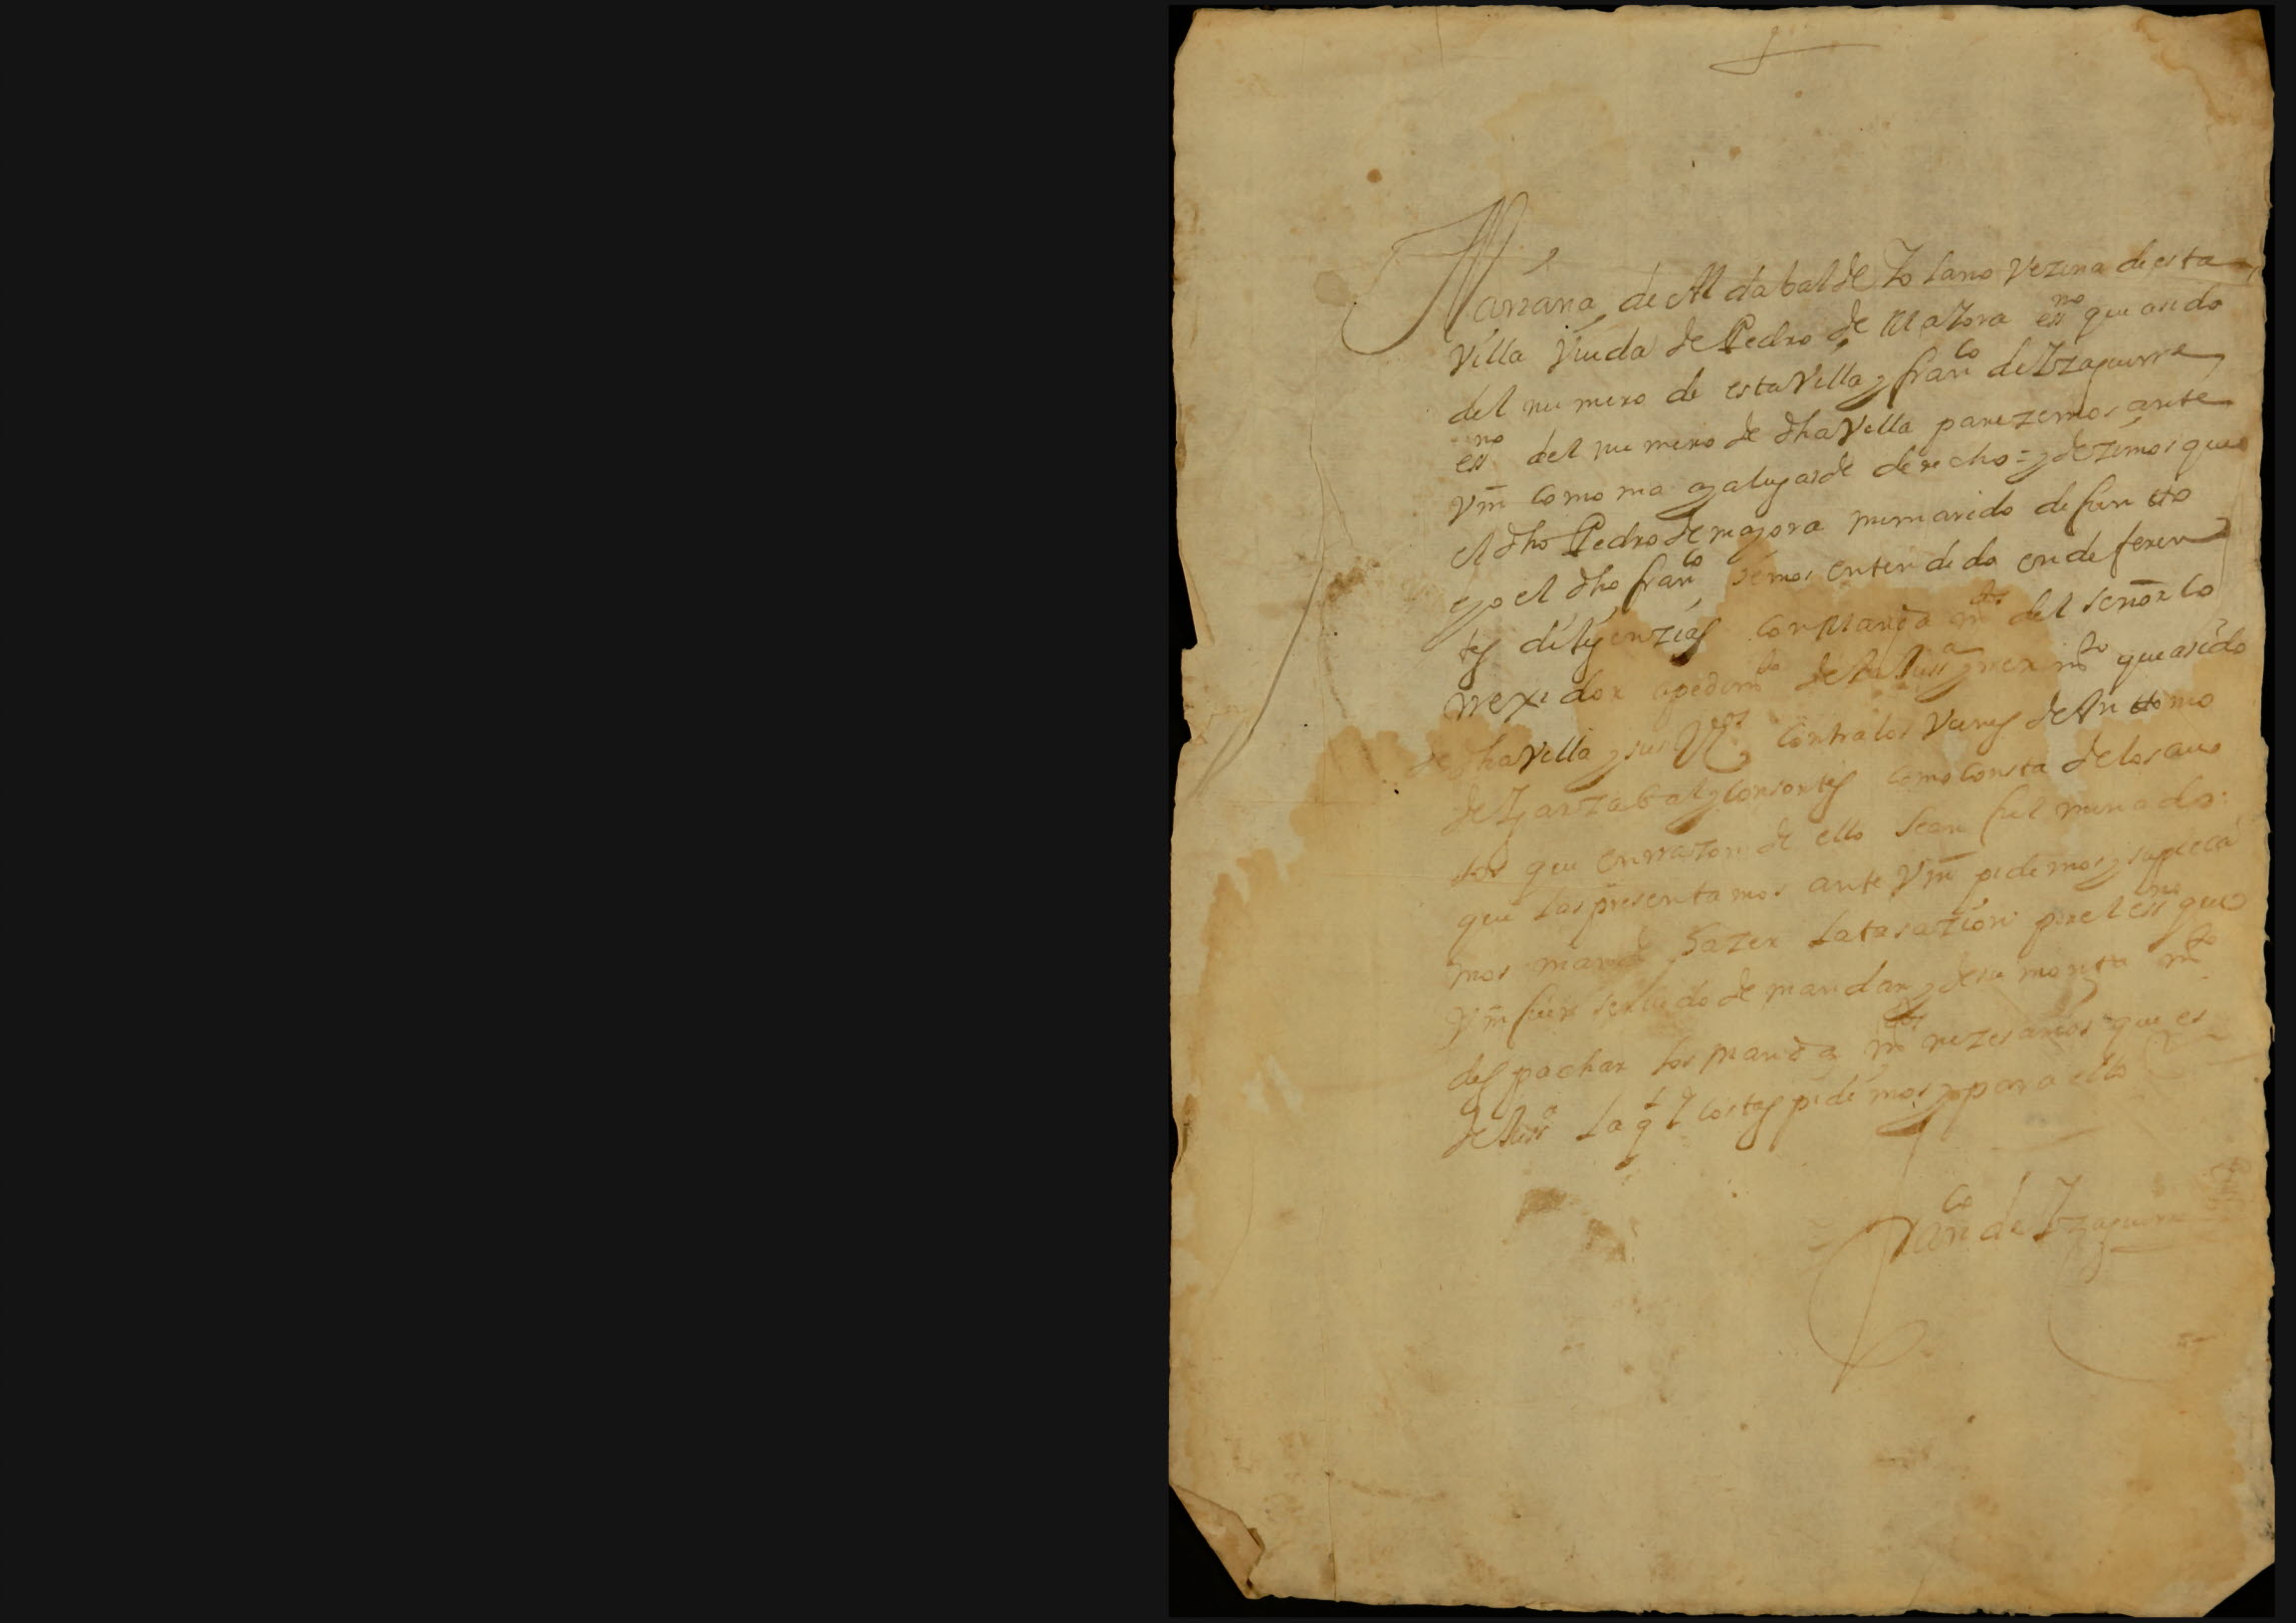 Mariana de Aldabalde Zolano Vezina de esta
Villa Viuda de Pedro de Mayora essno que asido
del numero de esta Villa y franco de Yzaguirre
essno del numero de dha Villa parezemos ante
Vm como mas aya lugar de derecho = y dezimos que
el dho Pedro de mayora mi marido defuntto
y o el dho franco hemos entendido en deferen
tes diligenzias con Mandamtos del señor co
rrexidor a pedimto de la Justa y reximto que asido
de dha Villa y sus contra los Vienes de Anttonio
de Yarzabal y consortes como consta de los auo
tos que en rrazon de ello sean fulminado
que los presentamos ante Vm pidimos y supleca
mos mande hazer la tasazion por el essno que
Vm fuere seruido de mandar y de su montamto
despachar los mandamtos nezesarios que es
de Justa la ql costas pidimos y para ello
Franco de Yzaguirre